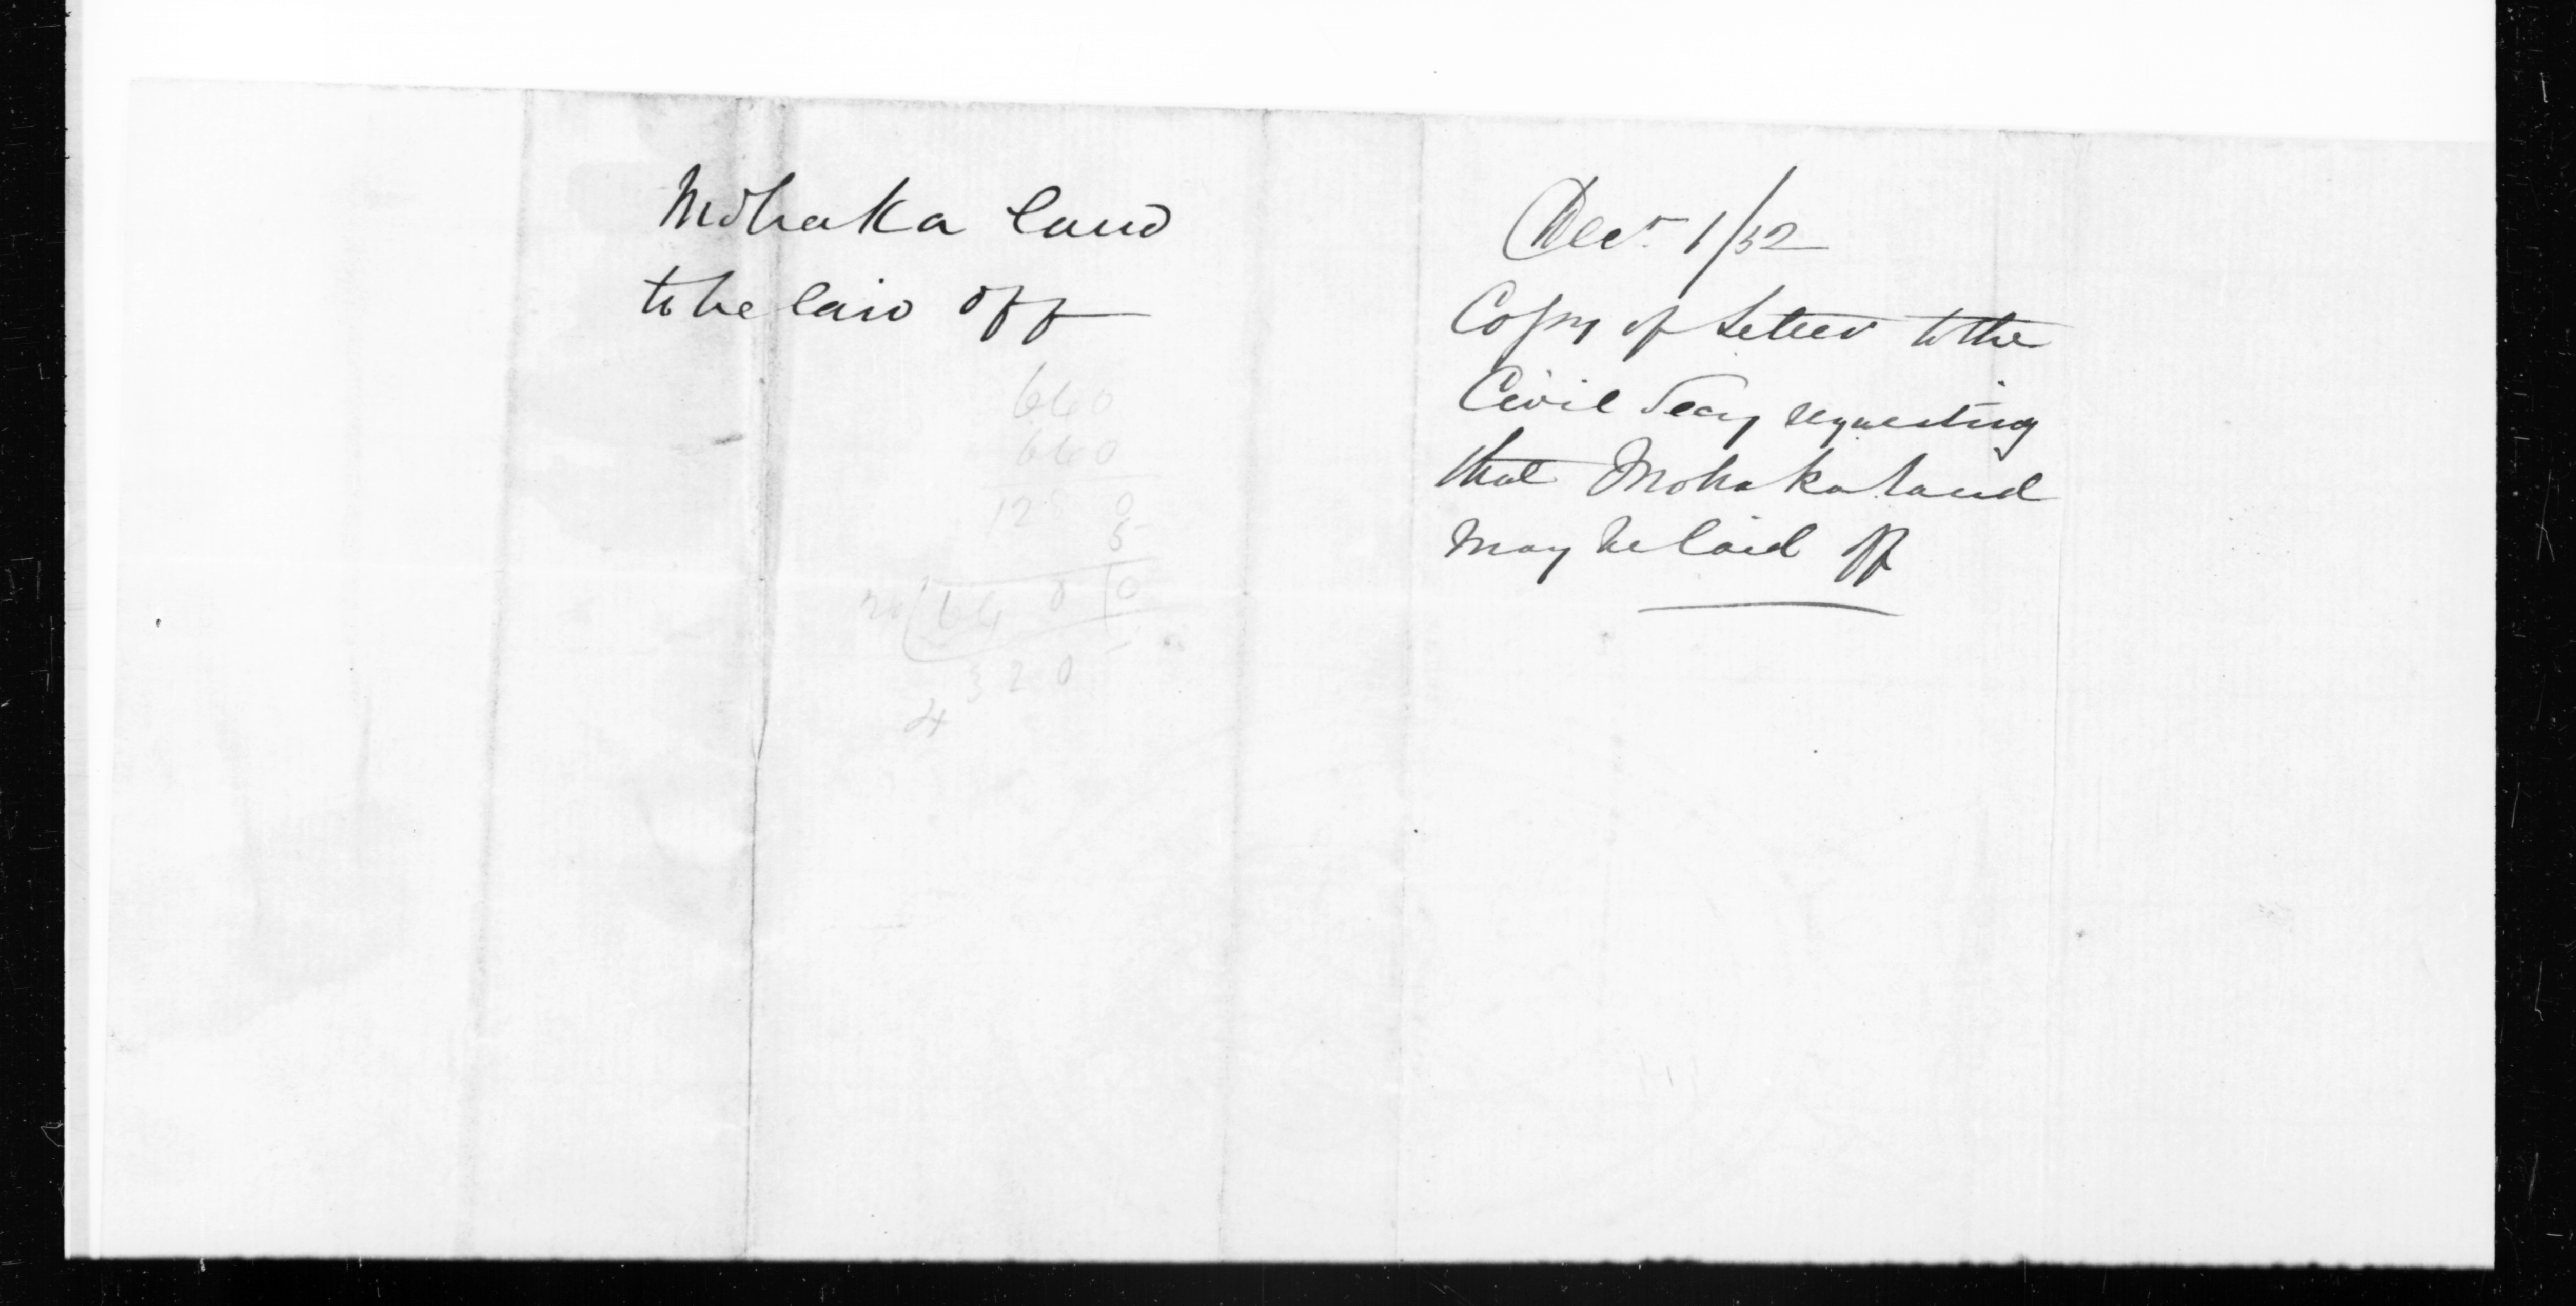 Mohaka land
to be laid off
660
660
128 0
5
20 64 0 0
320
4
Decr 1/52
Copy of Letter to the
Civil Secy requesting
that Mohaka land
may be laid off